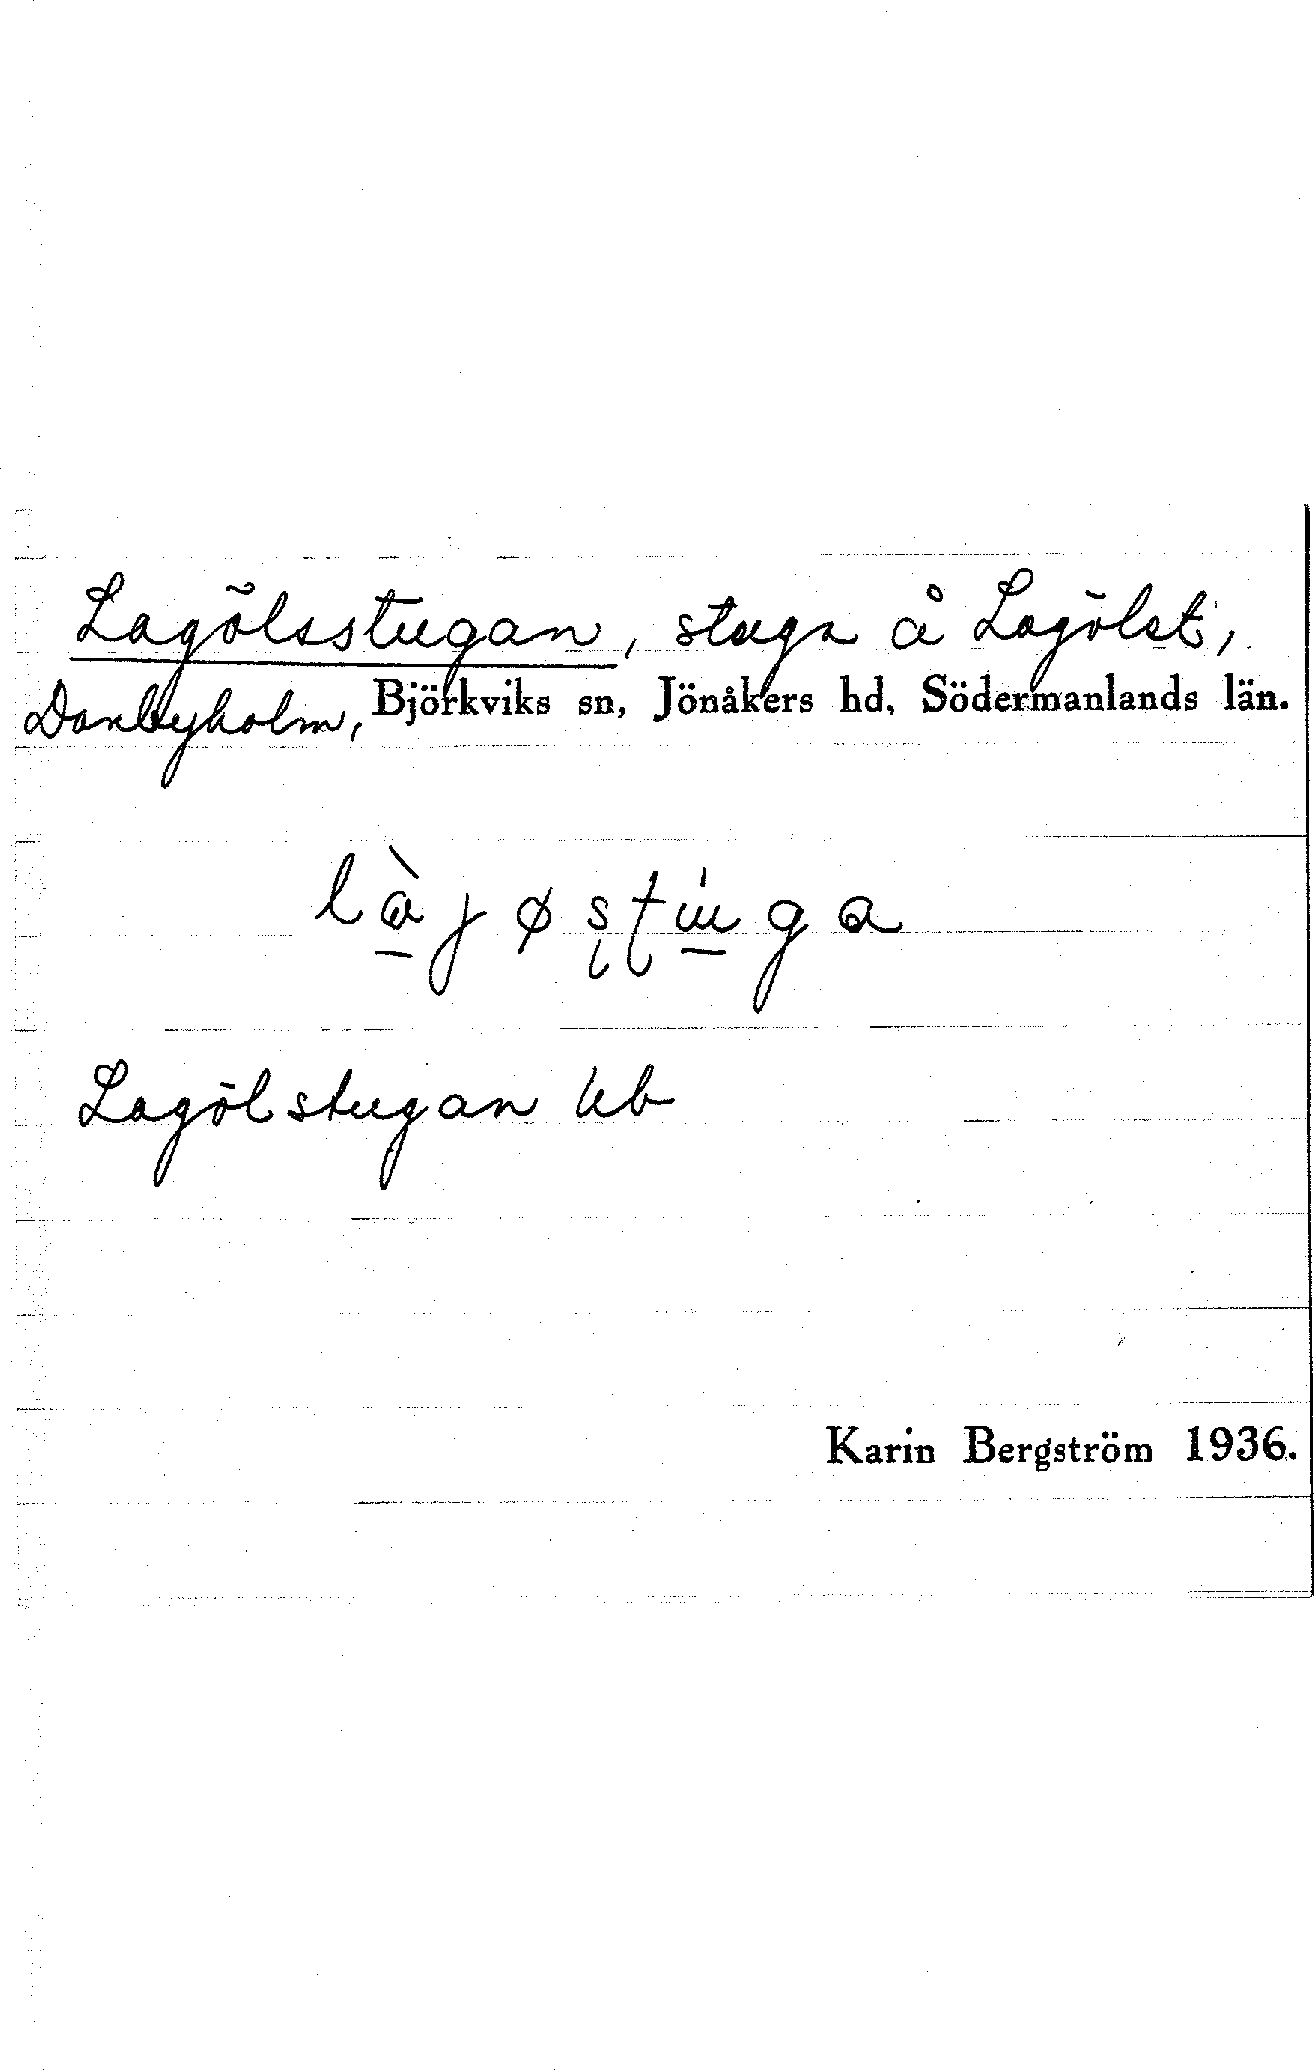 Lagölsstugan, stuga å Lagölet,
Danbyholm, Björkviks sn, Jönåkers hd, Södermanlands län.
Lagölstugan Ub
Karin Bergström 1936.